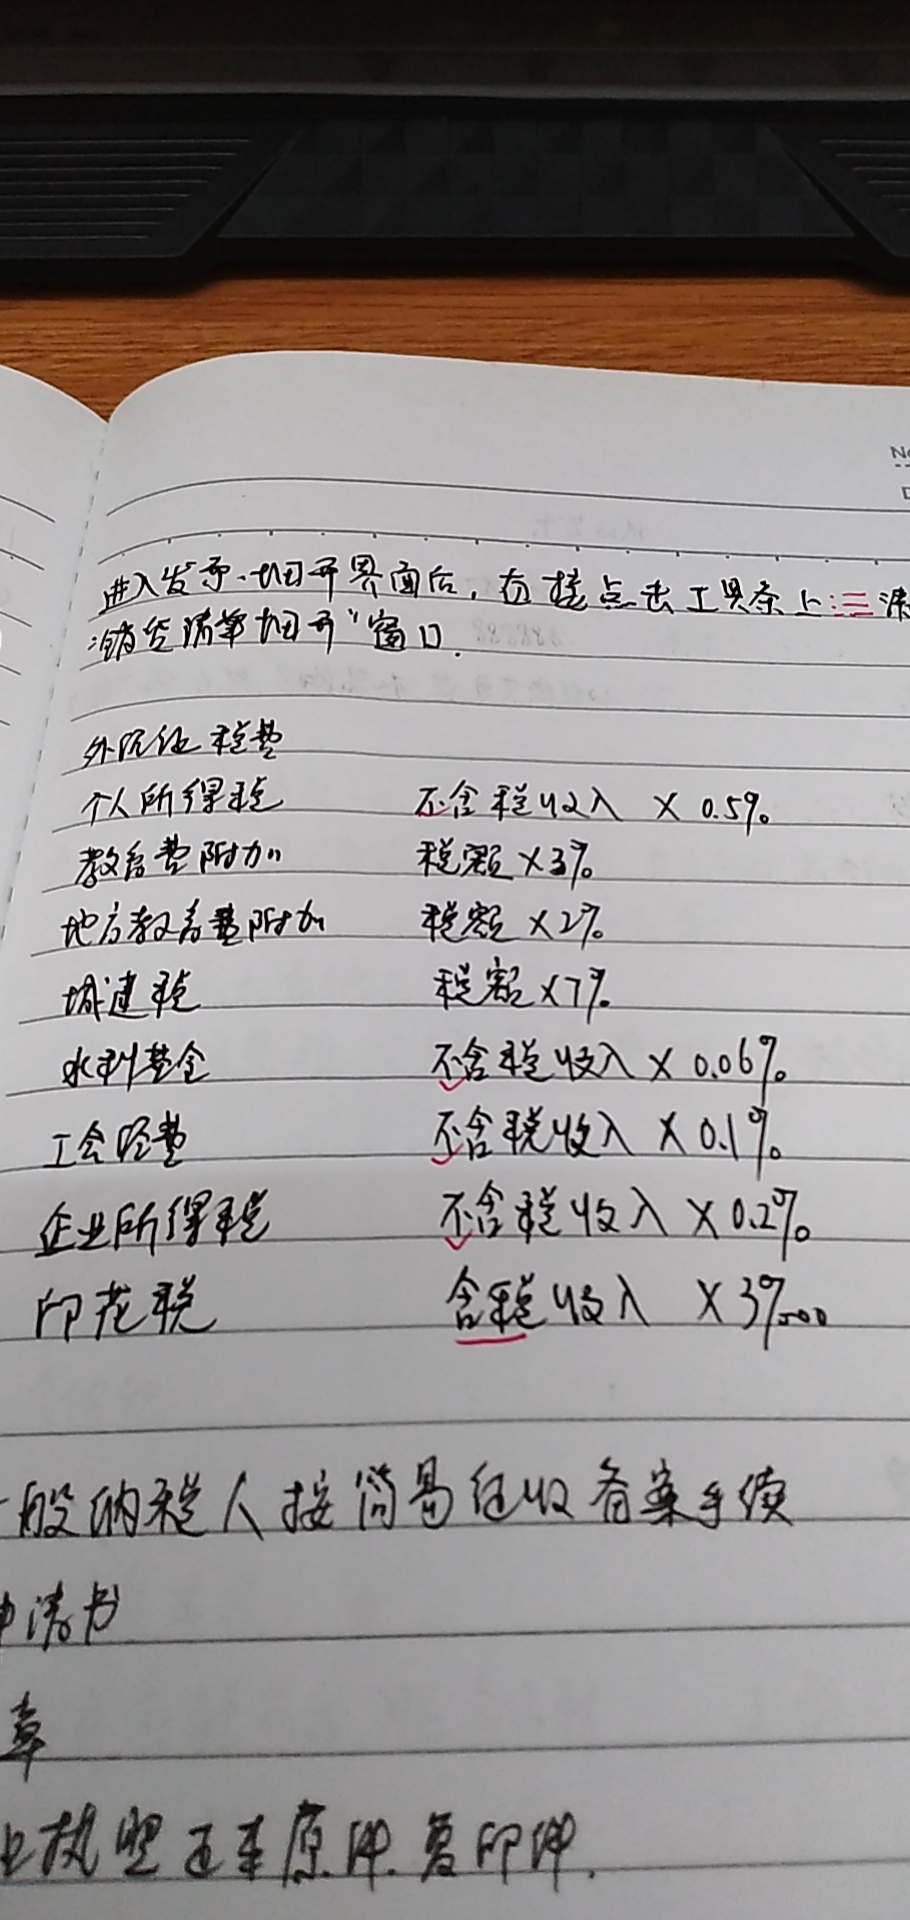 进入发票填开界面后，直接点击工具条上"清
"销货清单填开"窗口.
外阮征税费
个人所得税 不含税收入 × 0.5%
教育费附加 税额×3%
地方教育费附加 税额×2%
城建税 税额×7%
水利基金 不含税收入 × 0.06%
工会经费 不含税收入 × 0.1%
企业所得税 不含税收入 × 0.2%
印花税 含税收入 ×3‱
般纳税人按简易征收备案手续
申请书
章
业执照正本原件.复印件.